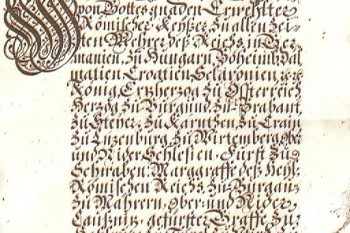 von Gottes gnaden Erwehlter
Römischer Keyser, zu allen zei-
ten Mehrer deß Reichs, in Ger-
manien, zu Hungarn, Böheimb, Dal-
matien, Croatien, Sclavonien, &c
König, Ertzherzog zu Österreich
Herzog zu Burgund, zu Brabant
zu Steyer, zu Kärnten, zu Crain
zu Luzenburg, zu Wirtemberg, ober
und Nider Schlesien, Fürst zu
Schwaben, Margraffe deß Heyl.
Römischen Reichs, zu Burgau,
zu Mähren, ober- und Nider
Laußnitz, gefürster Graffe zu